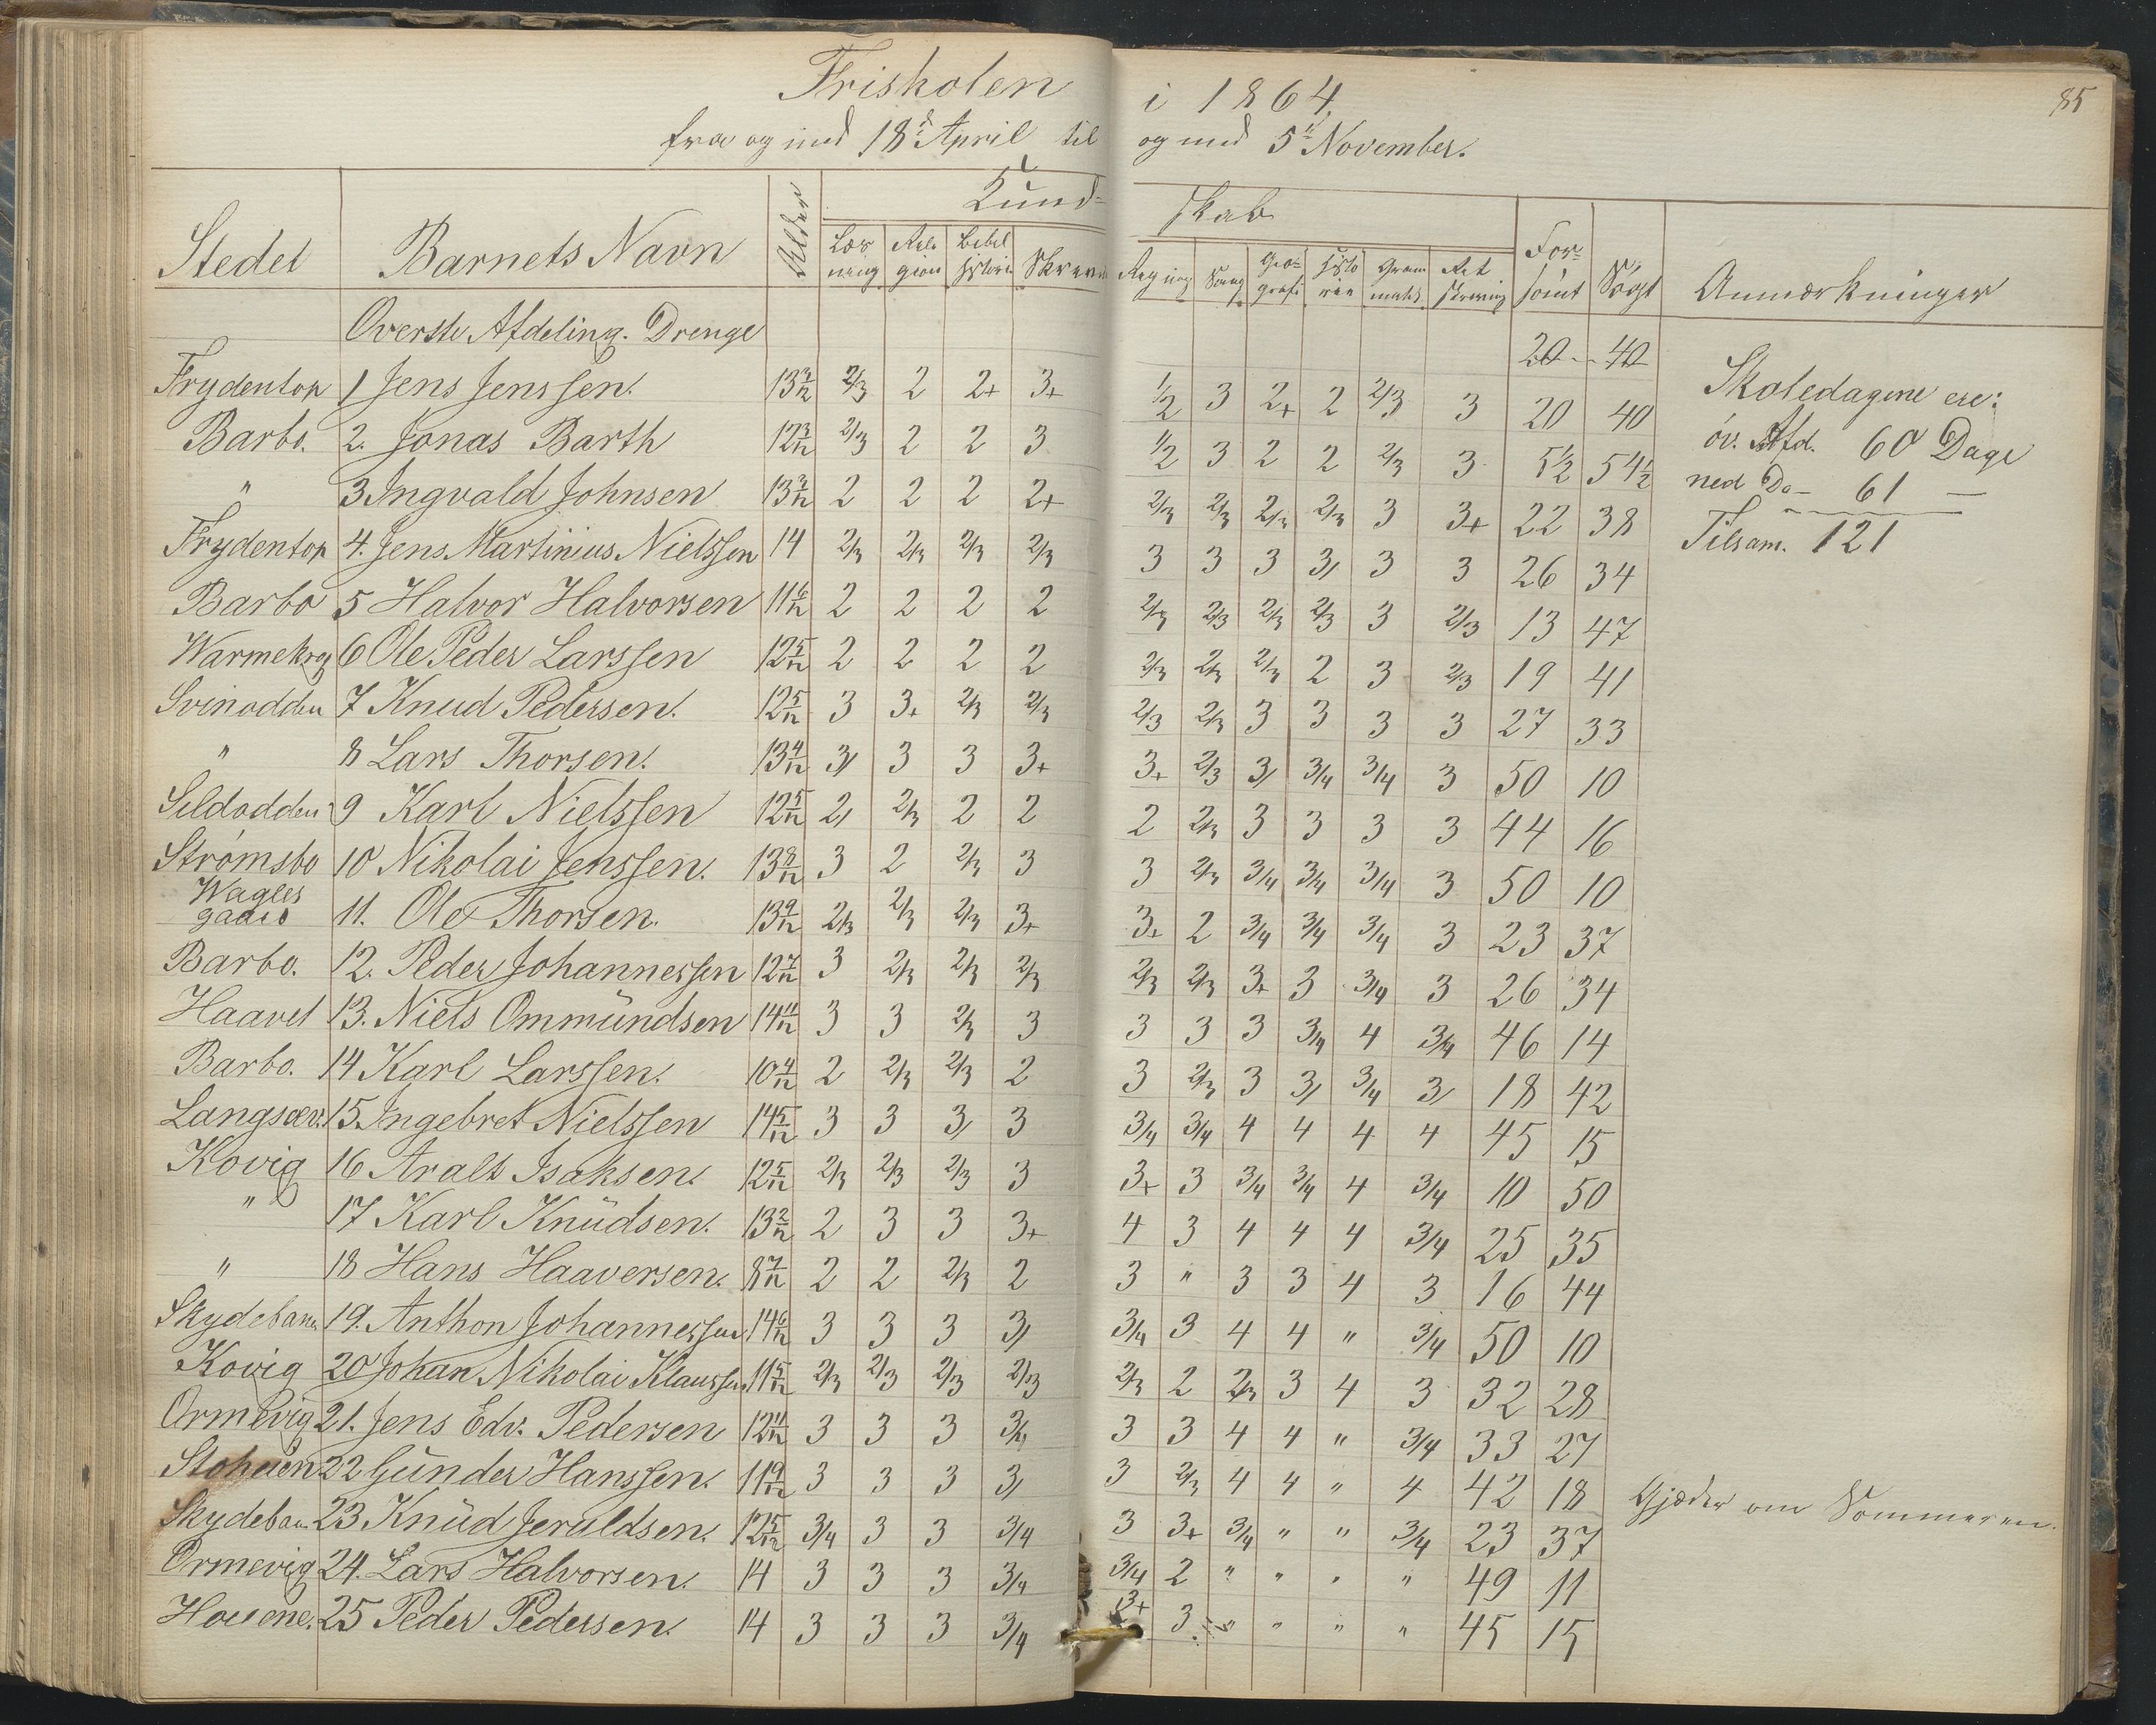 Friskolen i 1864.
85
fra og med 18d April til og med 5te November.
Stedet Barnets Navn Alder Kund- skab For- sömt Sögt Anmærkninger
Læs ning Reli gion Bibel historie Skrivn Regning Sang Geo- grafi Histo rie Gram matik Ret skrivning
Överste Afdeling. Drenge 20 40
Frydentop 1 Jens Jenssen. 13 3/12 2/3 2 2+ 3+ 1/2 3 2+ 2 2/3 3 20 40 Skoledagene ere:
Barbo. 2. Jonas Barth 12 3/12 2/3 2 2 3 1/2 3 2 2 2/3 3 5½ 54½ öv. Afd. 60 Dage
" 3 Ingvald Johnsen 13 3/12 2 2 2 2+ 2/3 2/3 2/3 2/3 3 3+ 22 38 ned Do - 61 —
Frydentop 4. Jens Martinius Nielssen 14 2/3 2/3 2/3 2/3 3 3 3 3/ 3 3 26 34 Tilsam. 121
Barbo 5 Halvor Halvorsen 11 6/12 2 2 2 2 2/3 2/3 2/3 2/3 3 2/3 13 47
Warmekrog 6 Ole Peder Larssen 12 5/12 2 2 2 2 2/3 2/3 2/3 2 3 2/3 19 41
Svinodden 7 Knud Pedersen. 12 5/12 3 3+ 2/3 2/3 2/3 2/3 3 3 3 3 27 33
" 8 Lars Thorsen. 13 4/12 3/ 3 3 3+ 3+ 2/3 3/ 3/4 3/4 3 50 10
Sildodden 9 Karl Nielssen 12 5/12 2/ 2/3 2 2 2 2/3 3 3 3 3 44 16
Strömsbo 10 Nikolai Jenssen. 13 8/12 3 2 2/3 3 3 2/3 3/4 3/4 3/4 3 50 10
Wagles
gaard 11. Ole Thorsen. 13 9/12 2/3 2/3 2/3 3+ 3+ 2 3/4 3/4 3/4 3 23 37
Barbo. 12. Peder Johannessen 12 7/12 3 2/3 2/3 2/3 2/3 2/3 3+ 3 3/4 3 26 34
Haavet 13. Niels Ommundsen 14 11/12 3 3 2/3 3 3 3 3 3/4 4 3/4 46 14
Barbo. 14 Karl Larssen. 10 4/12 2 2/3 2/3 2 3 2/3 3 3/ 3/4 3/ 18 42
Langsæv. 15. Ingebret Nielssen 14 5/12 3 3 3/ 3 3/4 3/4 4 4 4 4 45 15
Kovig 16 Aralt Isaksen. 12 5/12 2/3 2/3 2/3 3 3+ 3 3/4 3/4 4 3/4 10 50
" 17 Karl Knudsen. 13 2/12 2 3 3 3+ 4 3 4 4 4 3/4 25 35
" 18 Hans Haaversen. 8 7/12 2 2 2/3 2 3 " 3 3 4 3 16 44
Skydeban. 19. Anthon Johannessen 14 6/12 3 3 3 3/ 3/4 3 4 4 " 3/4 50 10
Kovig 20 Johan Nikolai Klaussen 11 5/12 2/3 2/3 2/3 2/3 2/3 2 2/3 3 4 3 32 28
Ormevig 21. Jens Edv. Pedersen 12 11/12 3 3 3 3/4 3 3 4 4 " 3/4 33 27
Stoheien 22 Gunder Hanssen. 11 9/12 3 3 3 3/ 3 2/3 4 4 " 4 42 18 Gjæder om Sommeren.
Skydeban. 23 Knud Jeruldsen. 12 5/12 3/4 3 3 3/4 3 3+ 3/4 " " 3/4 23 37
Ormevig 24. Lars Halvorsen. 14 3 3 3 3/4 3/4 2 " " " " 49 11
Houene. 25 Peder Pedersen. 14 3 3 3 3/4 3+ 3 " " " " 45 15